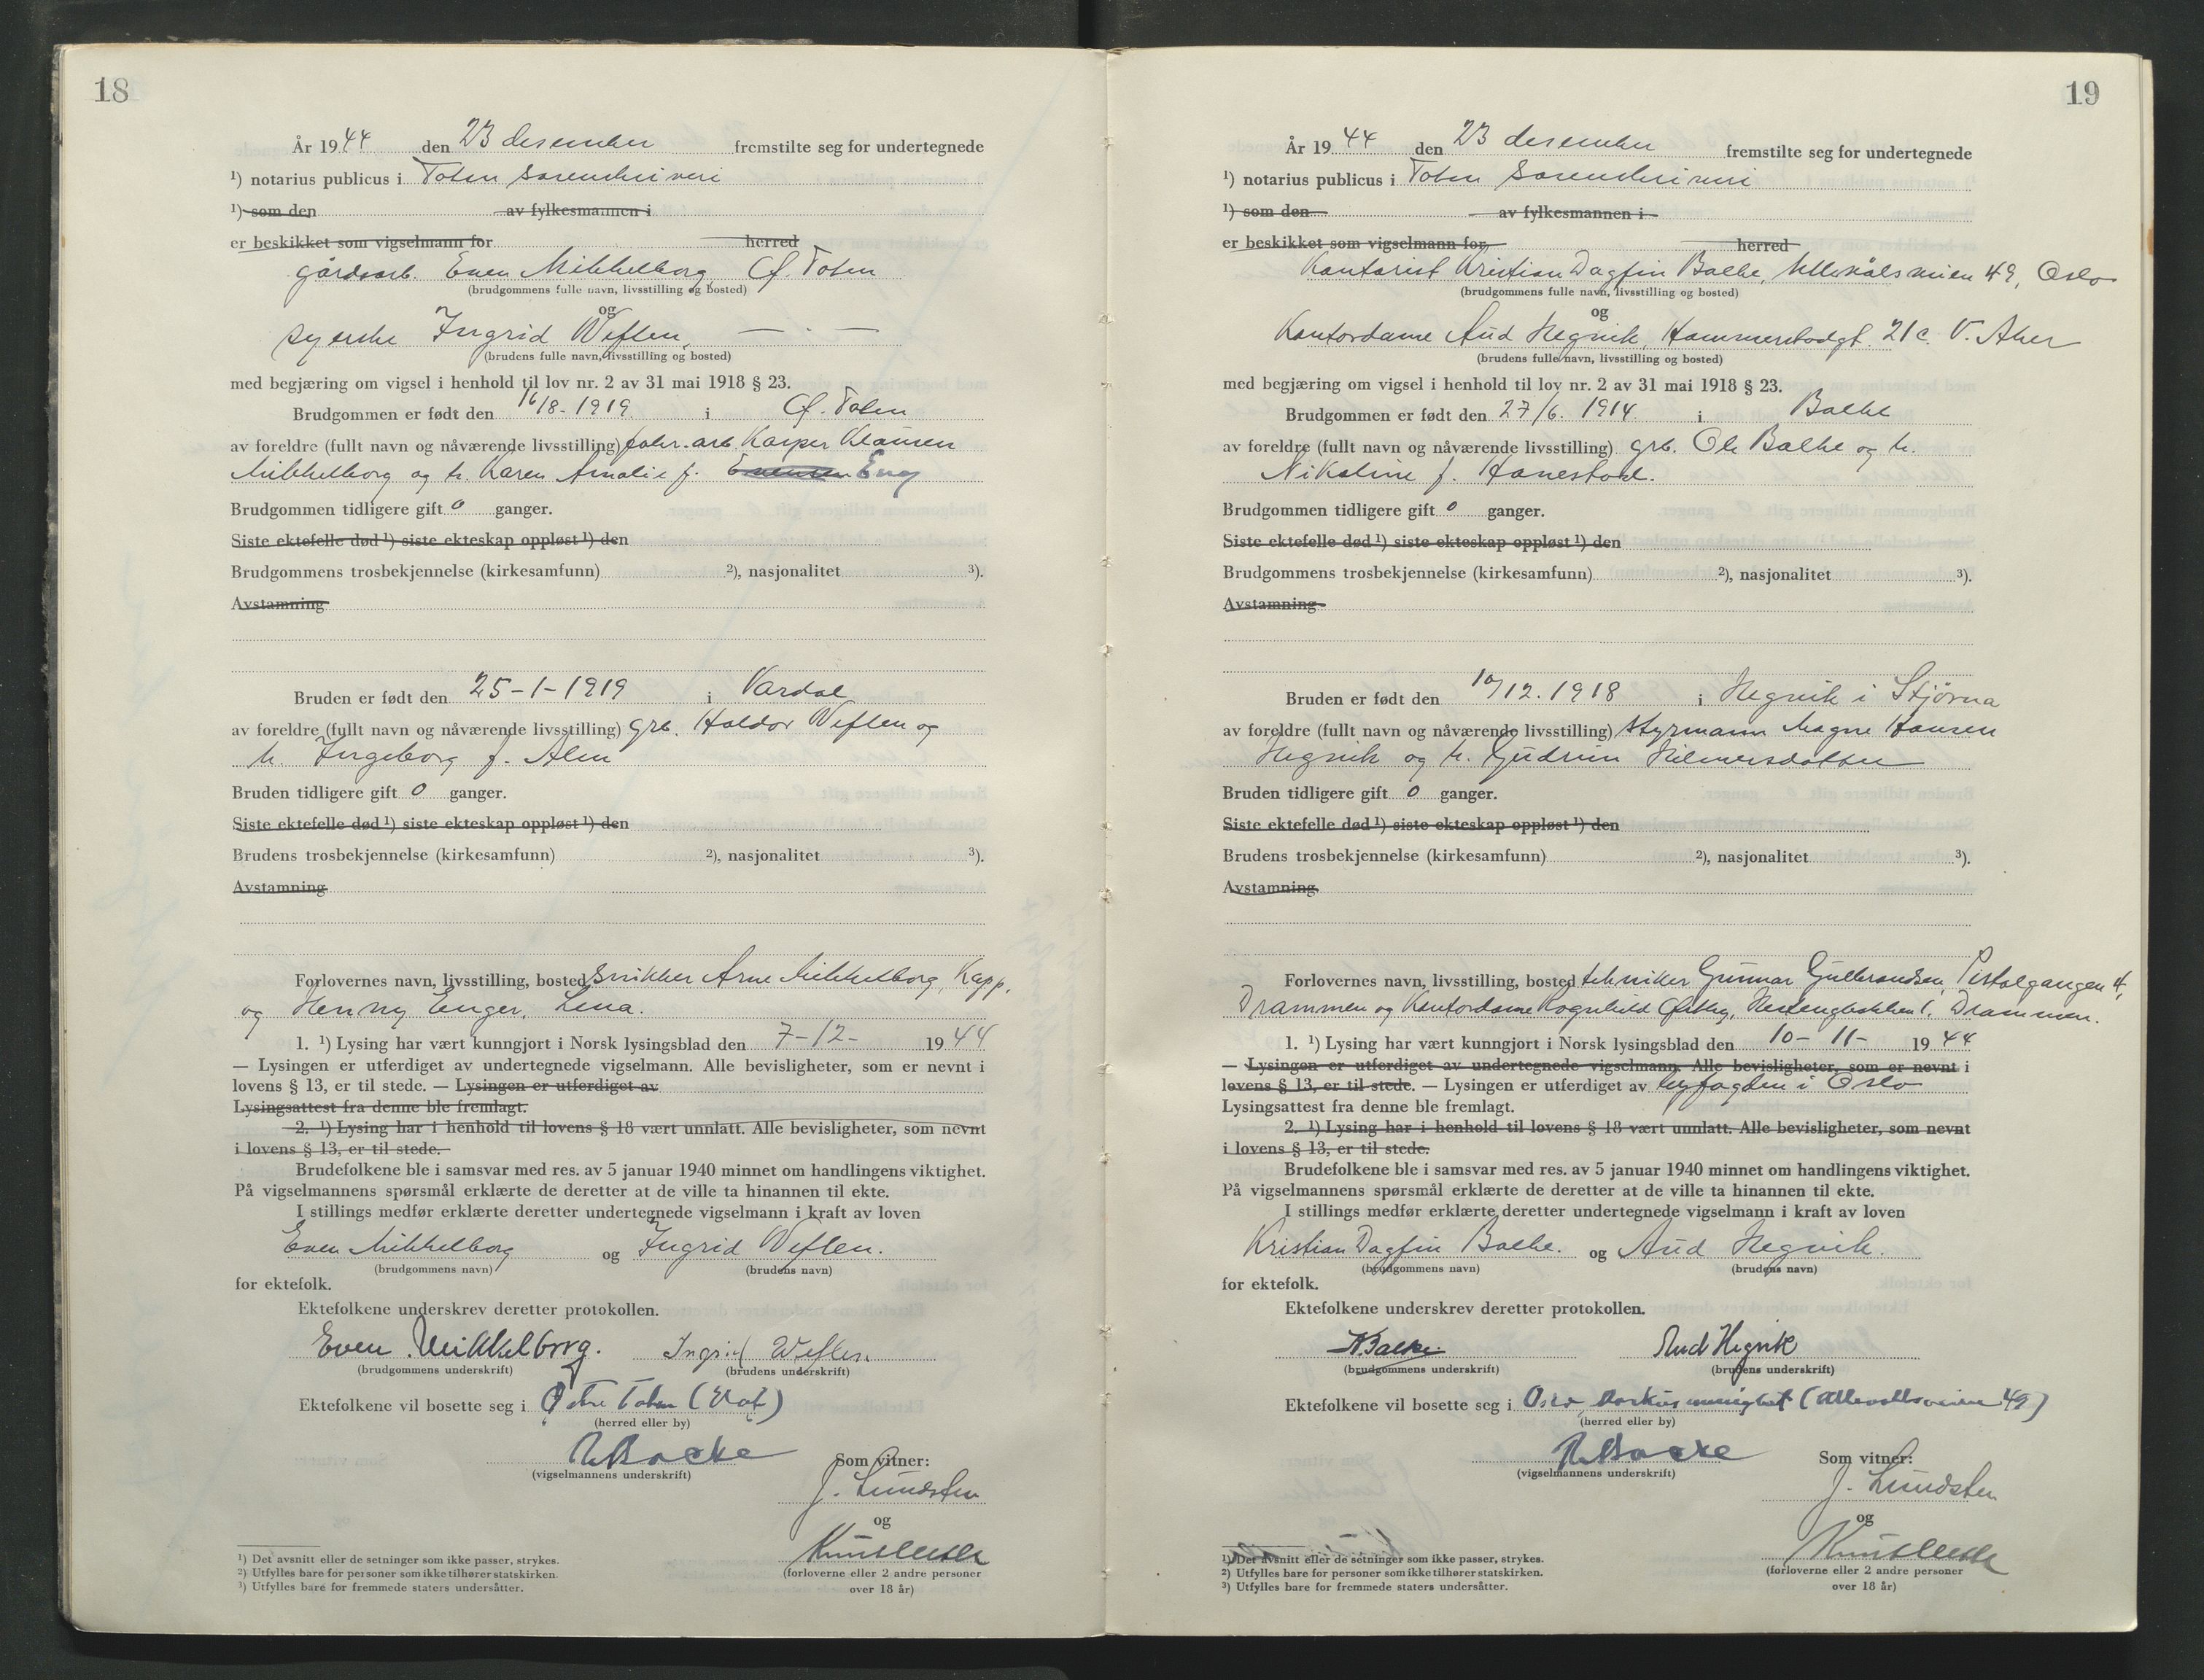 18
År 1944 den 23 desember fremstilte seg for undertegnede
¹) notarius publicus i Toten Sorenskriveri
¹) som den av fylkesmannen i
er beskikket som vigselmann for herred
gårdsarb. Even Mikkelborg Ø. Toten
(brudgommens fulle navn, livsstilling og bosted)
og
syerske Ingrid Weflen, — . —
(brudens fulle navn, livsstilling og bosted)
med begjæring om vigsel i henhold til lov nr. 2 av 31 mai 1918 § 23.
Brudgommen er født den 16/8-1919 i Ø. Toten
av foreldre (fullt navn og nåværende livsstilling) fabr. arb. Kasper Klausen
Mikkelborg og h. Karen Amalie f. Evensen Eng
Brudgommen tidligere gift 0 ganger.
Siste ektefelle død ¹) siste ekteskap oppløst ¹) den
Brudgommens trosbekjennelse (kirkesamfunn) ²), nasjonalitet ³).
Avstamning
Bruden er født den 25-1-1919 i Vardal
av foreldre (fullt navn og nåværende livsstilling) grb. Haldor Weflen og
h. Ingeborg f. Alm
Bruden tidligere gift 0 ganger.
Siste ektefelle død ¹) siste ekteskap oppløst ¹) den
Brudens trosbekjennelse (kirkesamfunn) ²), nasjonalitet ³).
Avstamning
Forlovernes navn, livsstilling, bosted Snikker Arne Mikkelborg, Kapp,
og Henny Enger, Lena.
1. ¹) Lysing har vært kunngjort i Norsk lysingsblad den 7-12- 1944
— Lysingen er utferdiget av undertegnede vigselmann. Alle bevisligheter, som er nevnt i
lovens § 13, er til stede. — Lysingen er utferdiget av
Lysingsattest fra denne ble fremlagt.
2. ¹) Lysing har i henhold til lovens § 18 vært unnlatt. Alle bevisligheter, som nevnt
i lovens § 13, er til stede.
Brudefolkene ble i samsvar med res. av 5 januar 1940 minnet om handlingens viktighet.
På vigselmannens spørsmål erklærte de deretter at de ville ta hinannen til ekte.
I stillings medfør erklærte deretter undertegnede vigselmann i kraft av loven
Even Mikkelborg og Ingrid Weflen.
(brudgommens navn) (brudens navn)
for ektefolk.
Ektefolkene underskrev deretter protokollen.
Even Mikkelborg. Ingrid Weflen
(brudgommens underskrift) (brudens underskrift)
Ektefolkene vil bosette seg i Østre Toten
(herred eller by)
(vigselmannens underskrift) Som vitner:
J. Lundsten
og
(forloverne eller 2 andre personer
over 18 år)
¹) Det avsnitt eller de setninger som ikke passer, strykes.
²) Utfylles bare for personer som ikke tilhører statskirken.
³) Utfylles bare for fremmede staters undersåtter.
19
År 1944 den 23 desember fremstilte seg for undertegnede
¹) notarius publicus i Toten Sorenskriveri
¹) som den av fylkesmannen i
er beskikket som vigselmann for herred
Kontorist Kristian Dagfin Balke, Ullevålsveien 49, Oslo
(brudgommens fulle navn, livsstilling og bosted)
og
Kontordame Aud Hegvik, Hammerstadgt. 21c. V. Aker
(brudens fulle navn, livsstilling og bosted)
med begjæring om vigsel i henhold til lov nr. 2 av 31 mai 1918 § 23.
Brudgommen er født den 27/6. 1914 i Balke
av foreldre (fullt navn og nåværende livsstilling) grb. Ole Balke og h.
Nikoline f. Hanestad.
Brudgommen tidligere gift 0 ganger.
Siste ektefelle død ¹) siste ekteskap oppløst ¹) den
Brudgommens trosbekjennelse (kirkesamfunn) ²), nasjonalitet ³).
Avstamning
Bruden er født den 10/12. 1918 i Hegvik i Stjørna
av foreldre (fullt navn og nåværende livsstilling) styrmann Magne Hansen
Hegvik og h. Gudrun Hilmersdatter
Bruden tidligere gift 0 ganger.
Siste ektefelle død ¹) siste ekteskap oppløst ¹) den
Brudens trosbekjennelse (kirkesamfunn) ²), nasjonalitet ³).
Avstamning
Forlovernes navn, livsstilling, bosted tekniker Gunnar Gulbrandsen, Pistolgangen 4,
Drammen og Kontordame Ragnhild Østby, Drammen.
1. ¹) Lysing har vært kunngjort i Norsk lysingsblad den 10- 11- 1944
— Lysingen er utferdiget av undertegnede vigselmann. Alle bevisligheter, som er nevnt i
lovens § 13, er til stede. — Lysingen er utferdiget av byfogden i Oslo
Lysingsattest fra denne ble fremlagt.
2. ¹) Lysing har i henhold til lovens § 18 vært unnlatt. Alle bevisligheter, som nevnt
i lovens § 13, er til stede.
Brudefolkene ble i samsvar med res. av 5 januar 1940 minnet om handlingens viktighet.
På vigselmannens spørsmål erklærte de deretter at de ville ta hinannen til ekte.
I stillings medfør erklærte deretter undertegnede vigselmann i kraft av loven
Kristian Dagfin Balke. og Aud Hegvik.
(brudgommens navn) (brudens navn)
for ektefolk.
Ektefolkene underskrev deretter protokollen.
K. Balke. Aud Hegvik
(brudgommens underskrift) (brudens underskrift)
Ektefolkene vil bosette seg i Oslo, (Ullevålsveien 49)
(herred eller by)
(vigselmannens underskrift) Som vitner:
J. Lundsten
og
(forloverne eller 2 andre personer
over 18 år)
¹) Det avsnitt eller de setninger som ikke passer, strykes.
²) Utfylles bare for personer som ikke tilhører statskirken.
³) Utfylles bare for fremmede staters undersåtter.